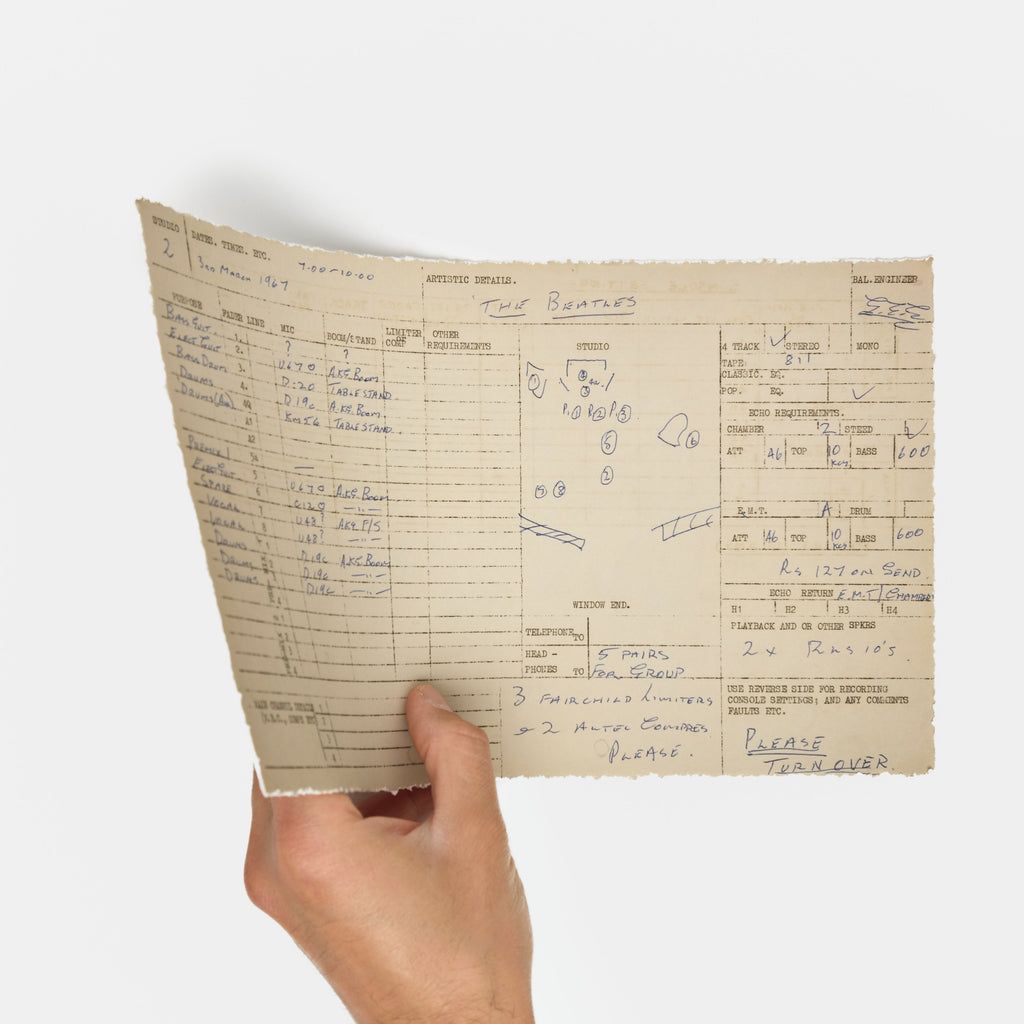 STUDIO DATES. TIMES. ETC.
2 3RD MARCH 1967 7.00-10.00
ARTISTIC DETAILS.
THE BEATLES
BAL.ENGINEER
G.E.E
PURPOSE FADER LINE MIC BOOM/STAND LIMITER OR COMP OTHER REQUIREMENTS
BASS GUIT. 1. ? ?
ELECT GUIT 2. U670 A.K.G. BOOM
BASS DRUM 3. D.20 TABLESTAND.
DRUMS 4. D19c A.K.G. BOOM.
DRUMS 4Q KM56 TABLESTAND.
A1
A2
5A
PREMIX 1 5 —
ELECT GUIT 6 U670 A.K.G. BOOM
SPARE 7 C12
VOCAL 8 U48 AKG F/S
VOCAL U48
DRUMS D19c A.K.G. BOOM
DRUMS D19c
DRUMS D19c
MAIN CHANNEL DETAILS
STUDIO
1
4
3
P.1 P.2 P.3
6
5
2
WINDOW END.
TELEPHONE TO
HEAD-PHONES TO 5 PAIRS FOR GROUP
3 FAIRCHILD LIMITERS
& 2 ALTEC COMPRES
PLEASE.
4 TRACK STEREO MONO
TAPE: 811
CLASSIC. EQ.
POP. EQ.
ECHO REQUIREMENTS.
CHAMBER 2 STEED
ATT A6 TOP 10 KCS. BASS 600
E.M.T. A DRUM
ATT A6 TOP 10 KCS BASS 600
RS 127 ON SEND.
ECHO RETURN E.M.T / CHAMBER
H1 H2 H3 H4
PLAYBACK AND OR OTHER SPKRS
2 X RLS 10'S.
USE REVERSE SIDE FOR RECORDING
CONSOLE SETTINGS; AND ANY COMMENTS
FAULTS ETC.
PLEASE
TURN OVER.